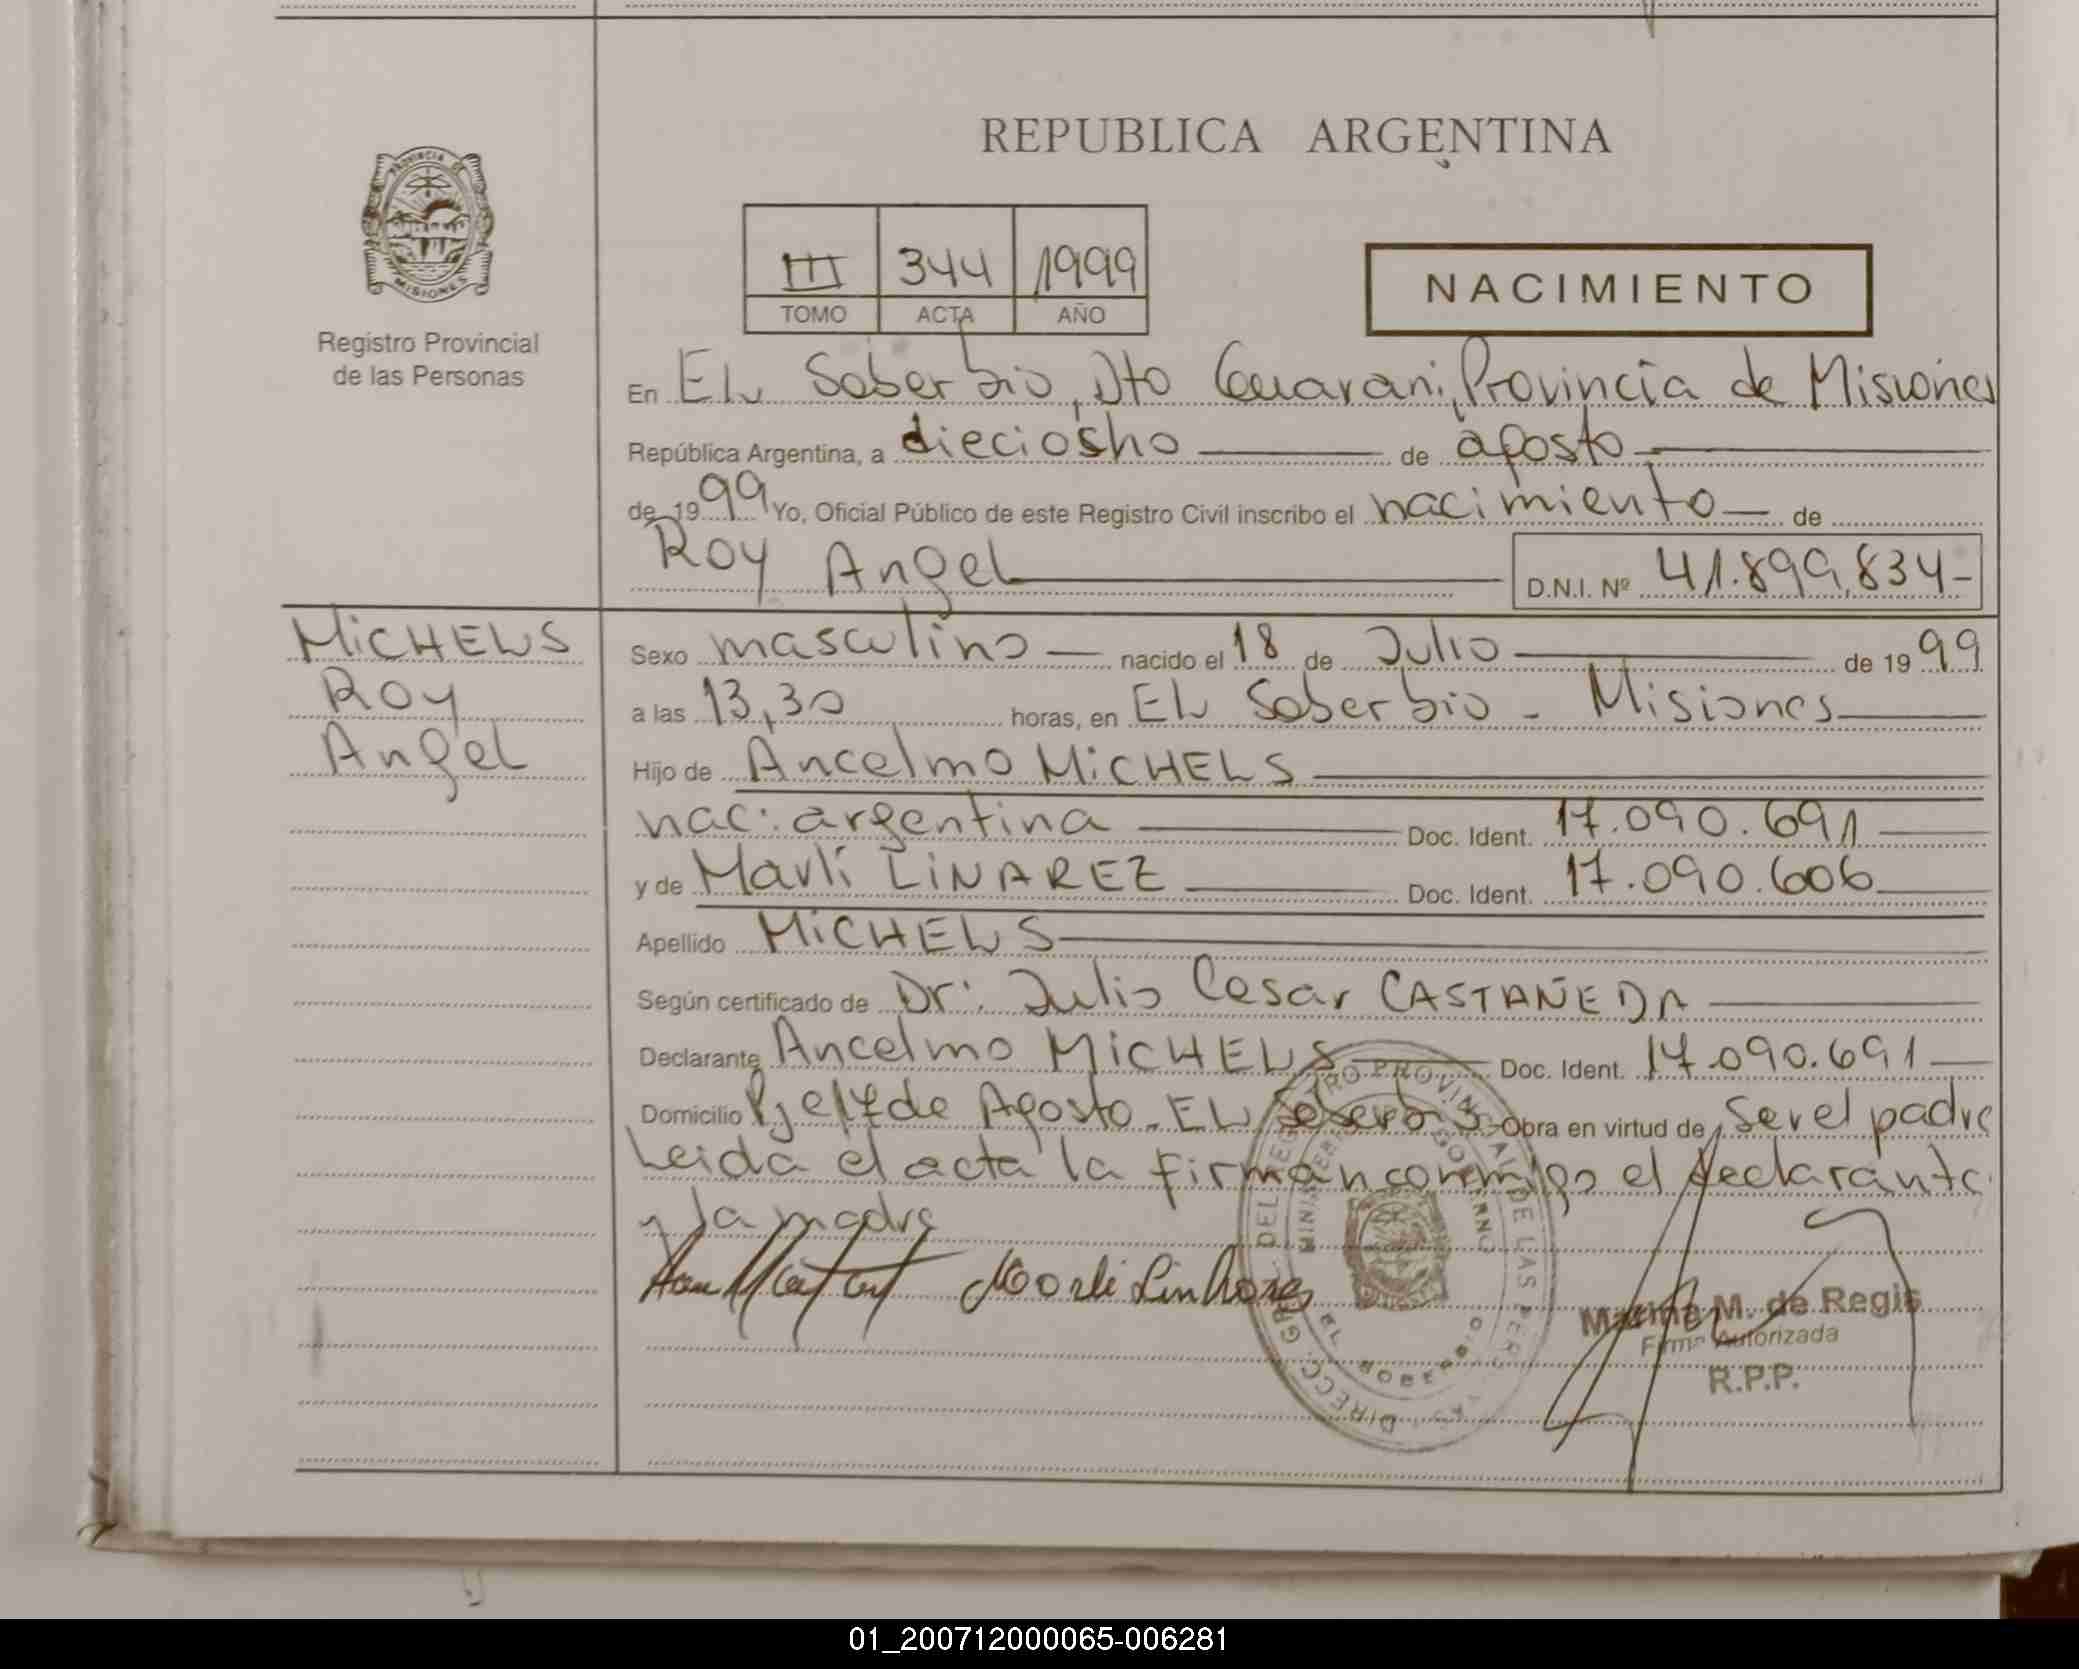 REPUBLICA ARGENTINA
PROVINCIA DE
MISIONES
Registro Provincial
de las Personas
III 344 1999
TOMO ACTA AÑO
NACIMIENTO
En El Soberbio, Dto Guarani, Provincia de Misiones
República Argentina, a dieciosho de agosto
de 1999 Yo, Oficial Público de este Registro Civil inscribo el nacimiento de
Roy Angel D.N.I. Nº 41.899.834-
MICHELS
Roy
Angel
Sexo masculino nacido el 18 de Julio de 1999
a las 13,30 horas, en El Soberbio - Misiones
Hijo de Ancelmo MICHELS
nac: argentina Doc. Ident. 17.090.691
y de Marli LINAREZ Doc. Ident. 17.090.606
Apellido MICHELS
Según certificado de Dr: Julio Cesar CASTAÑEDA
Declarante Ancelmo MICHELS Doc. Ident. 17.090.691
Domicilio Pje 17 de Agosto - El Soberbio Obra en virtud de Ser el padre
Leida el acta la firman conmigo el declarante
y la madre
Marina M. de Regis
Firma Autorizada
R.P.P.
DIRECC. GRAL. DEL REGISTRO PROVINCIAL DE LAS PERSONAS
EL SOBERBIO
01_200712000065-006281